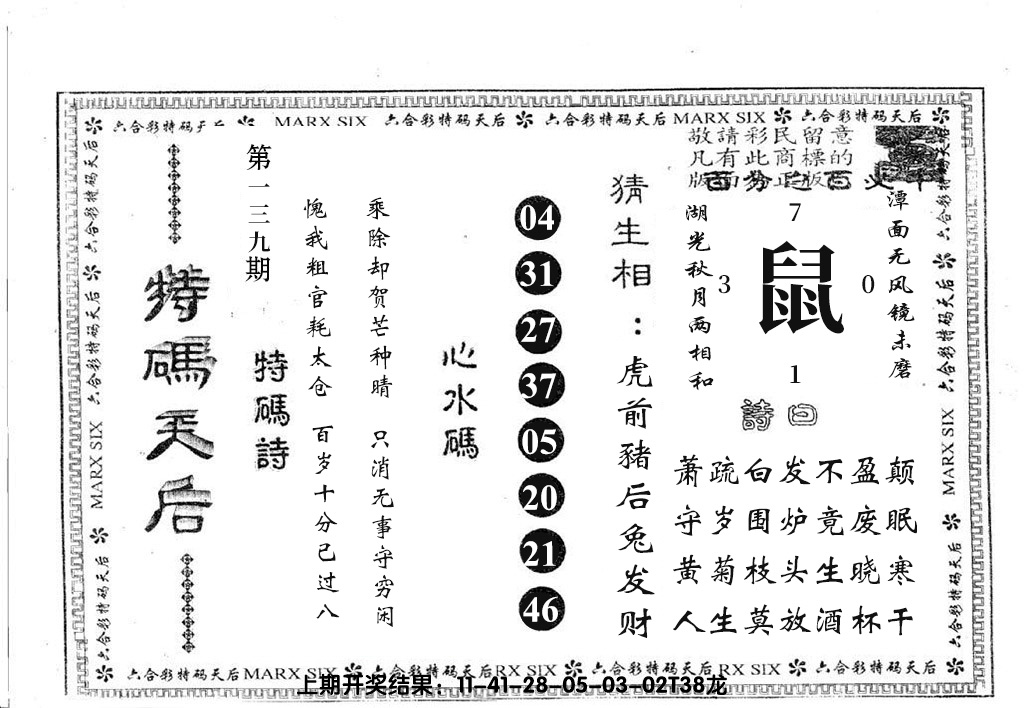 六合彩特码天后 MARX SIX 六合彩特码天后 六合彩特码天后 MARX SIX 六合彩特码天后
敬請彩民留意
凡有此商標的
第一三九期
特碼天后
特碼詩
愧我粗官耗太仓 百岁十分已过八
乘除却贺芒种晴 只消无事守穷闲
心水碼
04
31
27
37
05
20
21
46
猜生相：虎前豬后兔发财
湖光秋月两相和
潭面无风镜未磨
7
3 鼠 0
1
詩曰
萧疏白发不盈颠
守岁围炉竟废眠
黄菊枝头生晓寒
人生莫放酒杯干
六合彩特码天后 MARX SIX 六合彩特码天后
六合彩特码天后 MARX SIX 六合彩特码天后
六合彩特码天后 MARX SIX 六合彩特码天后 RX SIX 六合彩特码天后 RX SIX 六合彩特码天后
上期开奖结果：11-41-28-05-03-02T38龙